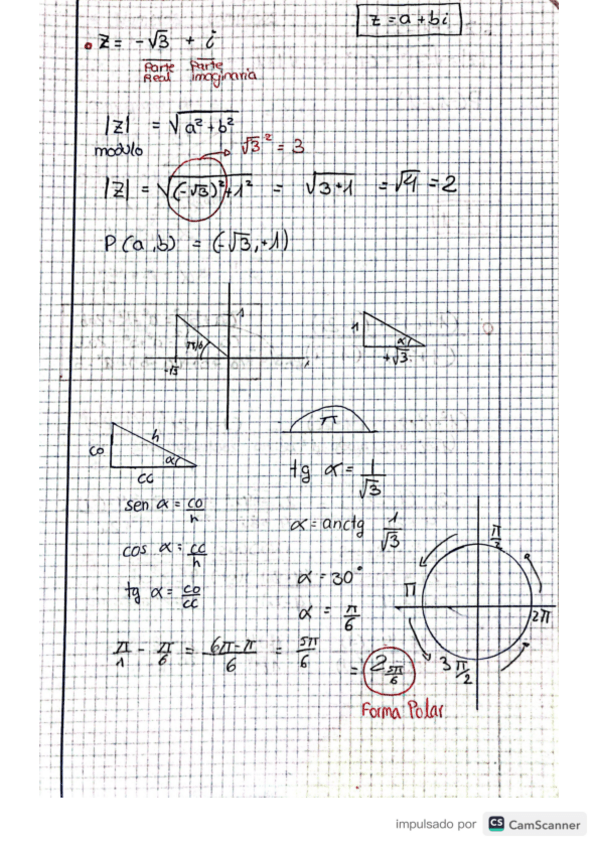 z = a + bi
• z = -√3 + i
Parte Real Parte imaginaria
|z| = √a² + b²
modulo
√3² = 3
|z| = √(-√3)² + 1² = √3+1 = √4 = 2
P(a,b) = (-√3, +1)
1
π/6
-√3
1
α
+√3
co
h
α
cc
π
tg α = 1/√3
sen α = co/h
α = arctg 1/√3
cos α = cc/h
α = 30°
tg α = co/cc
α = π/6
π/2
π
2π
3π/2
π/1 - π/6 = 6π-π/6 = 5π/6
= 2 5π/6
Forma Polar
impulsado por CS CamScanner